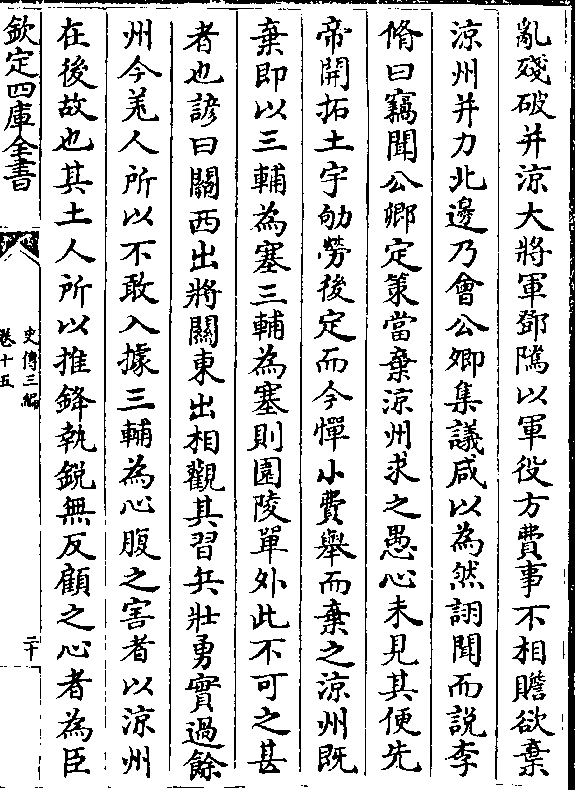 亂殘破并涼大將軍鄧隲以軍役方費事不相贍欲棄
涼州并力北邊乃會公卿集議咸以為然詡聞而說李
脩曰竊聞公卿定策當棄涼州求之愚心未見其便先
帝開拓土宇劬勞後定而今憚小費舉而棄之涼州既
棄即以三輔為塞三輔為塞則園陵單外此不可之甚
者也諺曰關西出將關東出相觀其習兵壯勇實過餘
州今羌人所以不敢入據三輔為心腹之害者以涼州
在後故也其土人所以推鋒執銳無反顧之心者為臣
欽定四庫全書
史傳三編
卷十五
二十